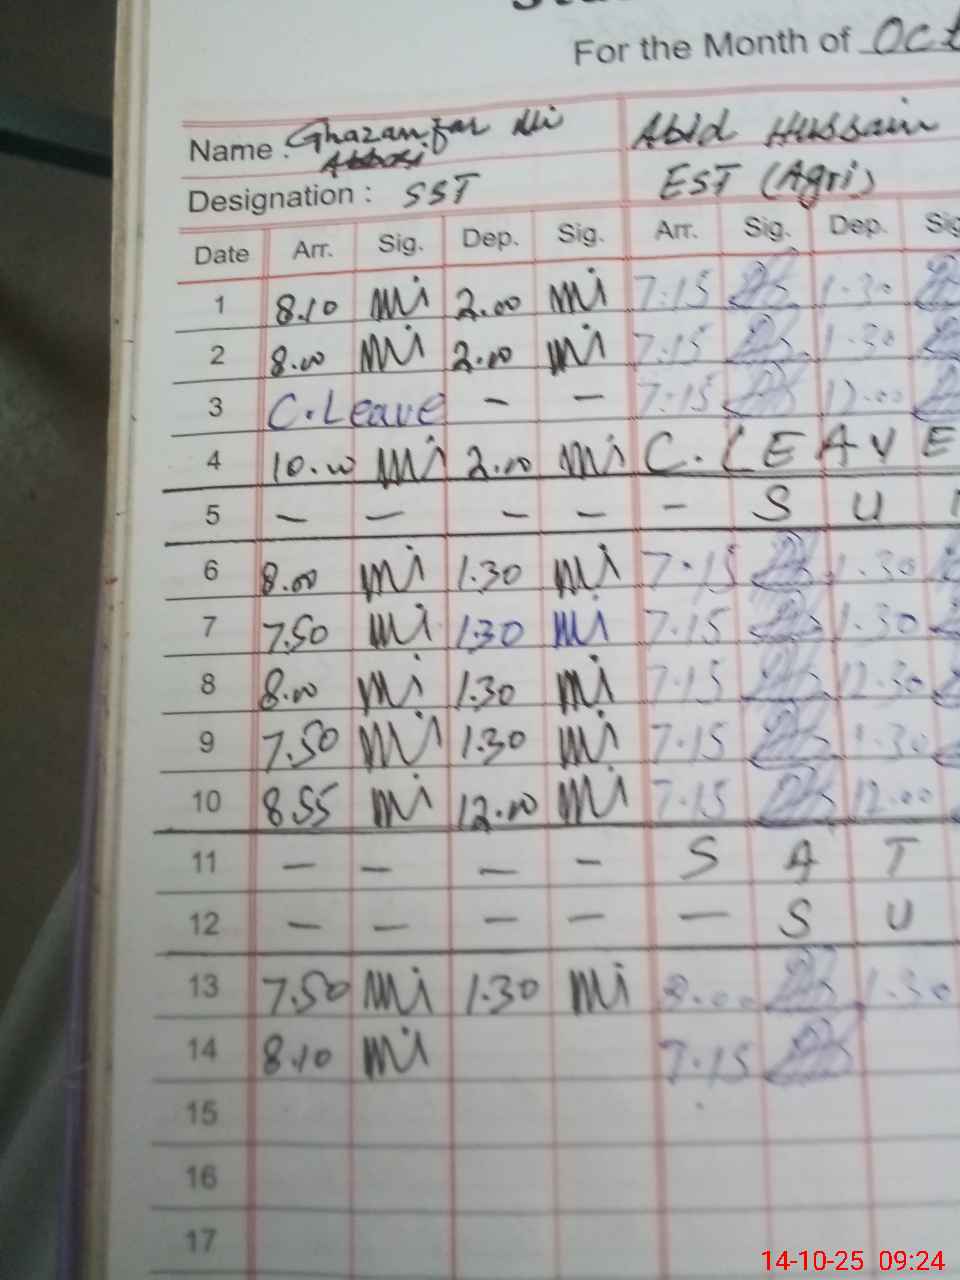 For the Month of Oct
Name : Ghazanfar Ali Abid Hussain
Abbasi
Designation : SST EST (Agri)
Date Arr. Sig. Dep. Sig. Arr. Sig. Dep. Sig
1 8.10 2.00 7.15 1.30
2 8.00 2.00 7.15 1.30
3 C.Leave - - 7.15 12.00
4 10.00 2.00 C.LEAVE
5 - - - - - S U
6 8.00 1.30 7.15 1.30
7 7.50 1.30 7.15 1.30
8 8.00 1.30 7.15 12.30
9 7.50 1.30 7.15 1.30
10 8.55 12.00 7.15 12.00
11 - - - - S A T
12 - - - - - S U
13 7.50 1.30 8.00 1.30
14 8.10 7.15
15
16
17
14-10-25 09:24